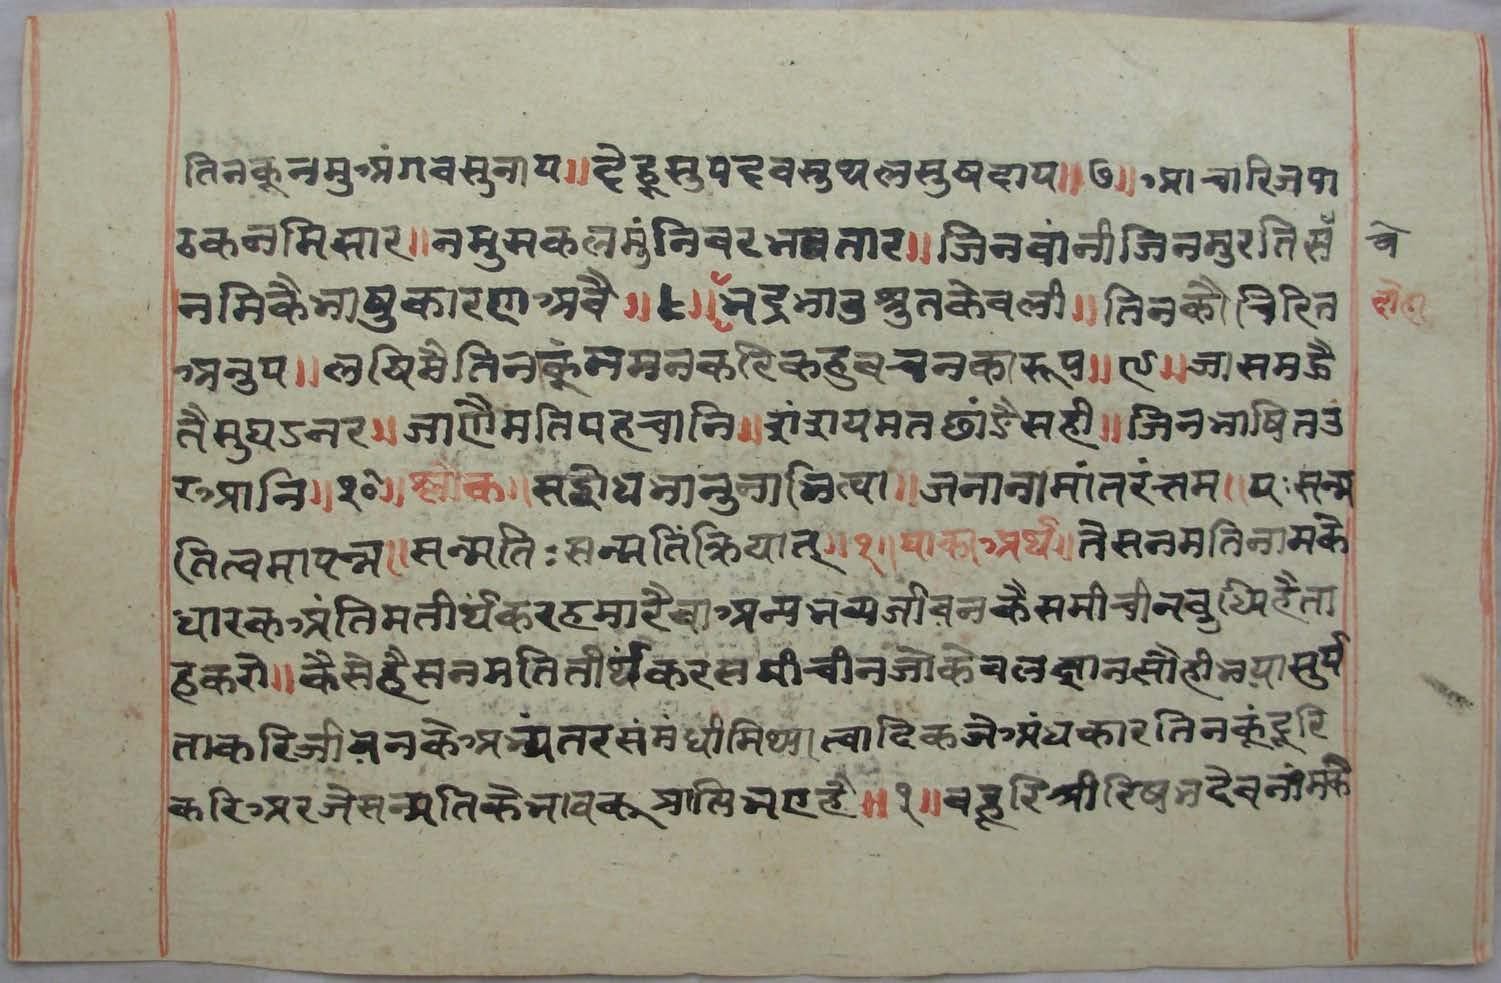 तिनकूनमुअंगवसुनाय॥ देहूसुपदवसुथलसुषदाय॥७॥आचारिजपा
ठकनमिसार॥नमुसकलमुंनिवरभवतार॥जिनवांनीजिनमुरतिसँ
वे
नमिकैभाषुकारणअवै॥८॥भद्रभाउश्रुतकेवली॥तिनकौचिरित
दोहा
अनुप॥लषिमैतिनकूंनमनकरिकहुवचनकारूप॥९॥जासमझै
तैमुघऽनर॥जाणैमतिपहचानि॥रांरायमतछांडैसही॥जिनभाषितउ
रआनि॥१०॥श्लोक॥सद्बोधभानुनाभित्वा॥जनानामांतरंत्तम॥यःसन्म
तित्वमापन्न॥सन्मतिःसन्मतिंक्रियात्॥१॥याकाअर्थ॥तैसनमतिनामकै
धारकअंतिमतीर्थंकरहमारैवाअन्यभव्यजीवनकैसमीचीनबुधिहैता
हकरो॥कैसेहैसनमतितीर्थंकरसमीचीनजोकेवलज्ञानसौहीभयासुर्य
ताकरिजीवनकेअभ्यंतरसंमंधीमिथ्यात्वादिकजेअंधकारतिनकूंदूरि
करिअरजेसन्मतिकेभावकूप्राप्तिभएहै॥१॥बहूरिश्रीरिषभदेवनांमकै